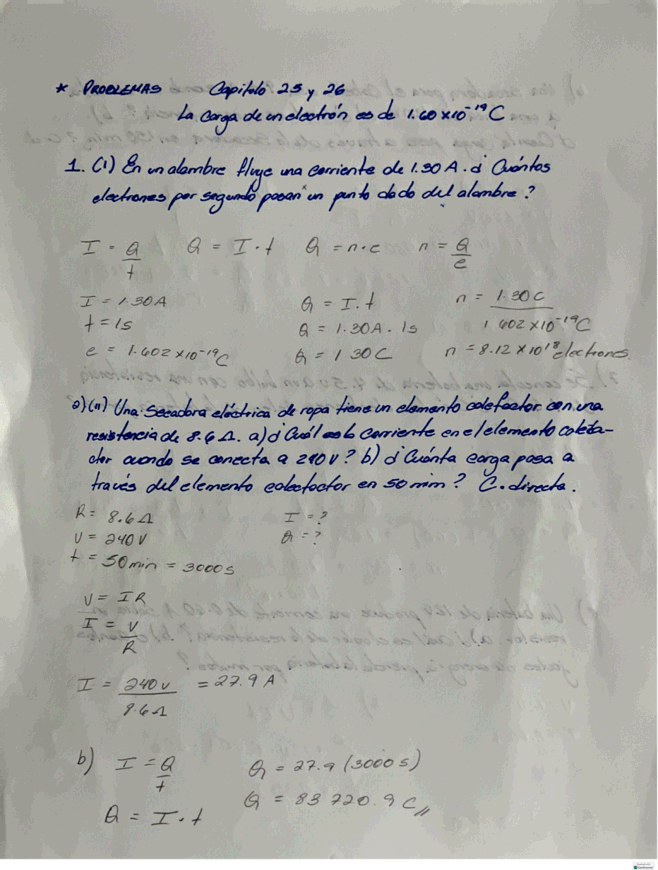 * PROBLEMAS Capitulo 25 y 26
La carga de un electrón es de 1.60 x10⁻¹⁹ C
1. (I) En un alambre fluye una corriente de 1.30 A. ¿ Cuántos
electrones por segundo pasan un punto dado del alambre ?
I = Q/t Q = I · t Q = n · e n = Q/e
I = 1.30 A Q = I . t n = 1.30 C / 1.602 x10⁻¹⁹ C
t = 1s Q = 1.30 A . 1s
e = 1.602 x10⁻¹⁹ C Q = 1.30 C n = 8.12 x 10¹⁸ electrones.
2) (II) Una secadora eléctrica de ropa tiene un elemento calefactor con una
resistencia de 8.6 Ω. a) ¿ Cuál es la corriente en el elemento calefa-
ctor cuando se conecta a 240 V ? b) ¿ Cuánta carga pasa a
través del elemento calefactor en 50 min ? C. directa.
R = 8.6 Ω I = ?
V = 240 V Q = ?
t = 50 min = 3000 s
V = I R
I = V/R
I = 240 V / 8.6 Ω = 27.9 A
b) I = Q/t Q = 27.9 (3000 s)
Q = I · t Q = 83 720.9 C //